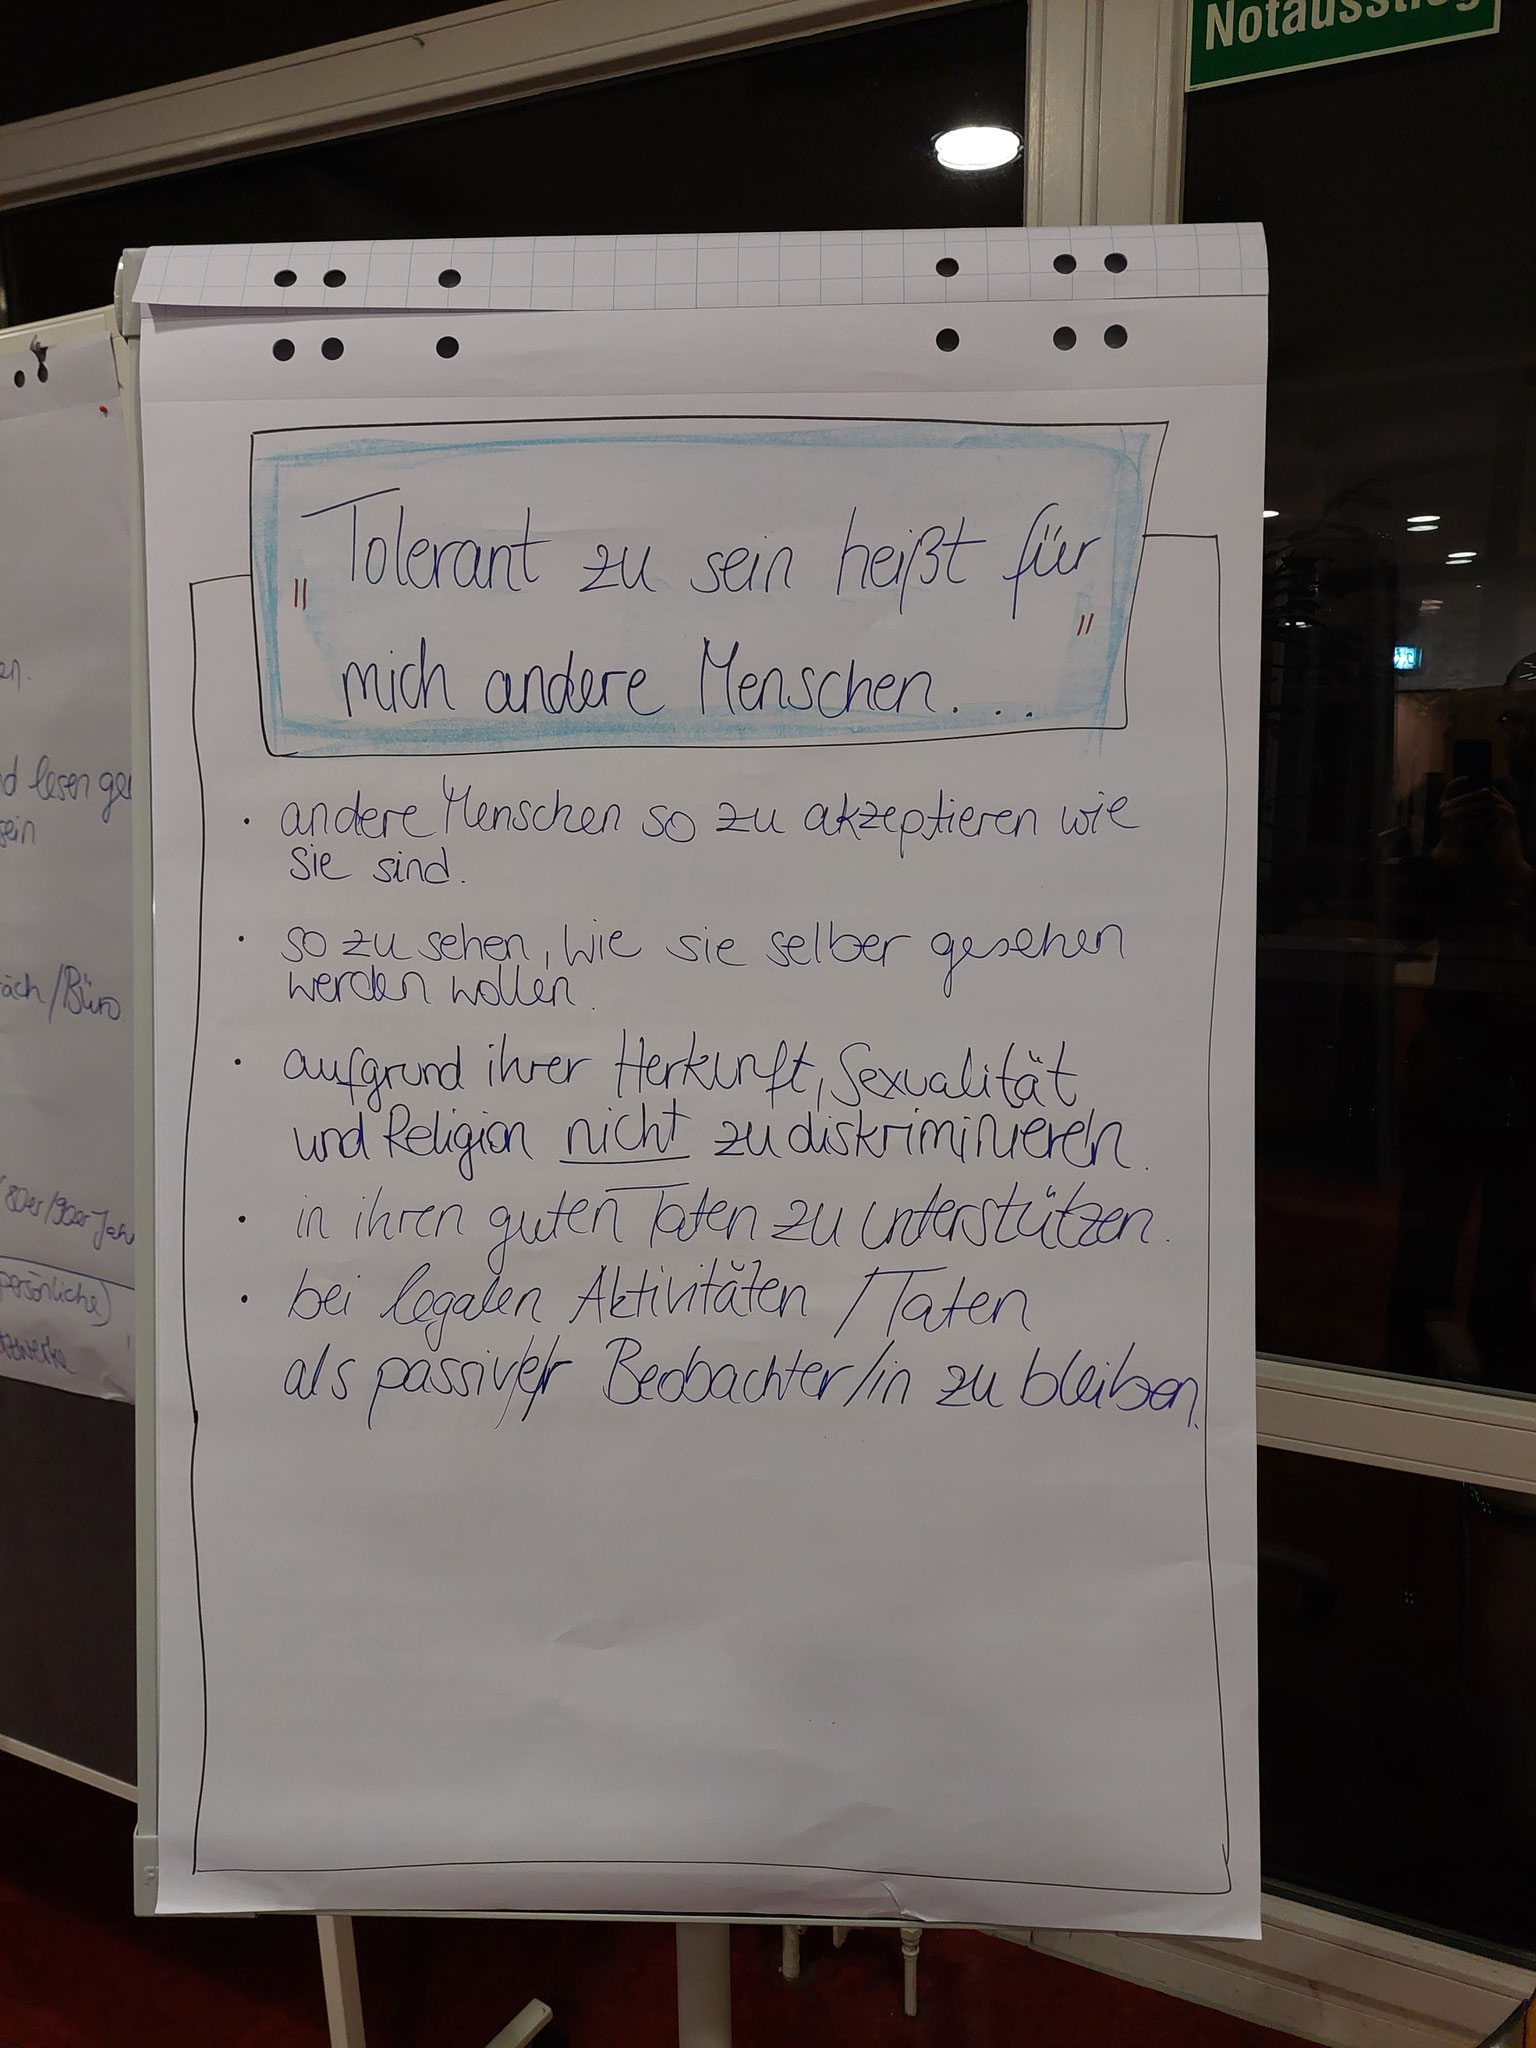 Notausstieg
„Tolerant zu sein heißt für
mich andere Menschen..."
· andere Menschen so zu akzeptieren wie
sie sind.
· so zu sehen, wie sie selber gesehen
werden wollen.
· aufgrund ihrer Herkunft, Sexualität
und Religion nicht zu diskriminieren.
· in ihren guten Taten zu unterstützen.
· bei legalen Aktivitäten / Taten
als passiv/e/r Beobachter/in zu bleiben.
en.
d lesen ge
sein
äch/Büro
80er/90er Jah
persönliche)